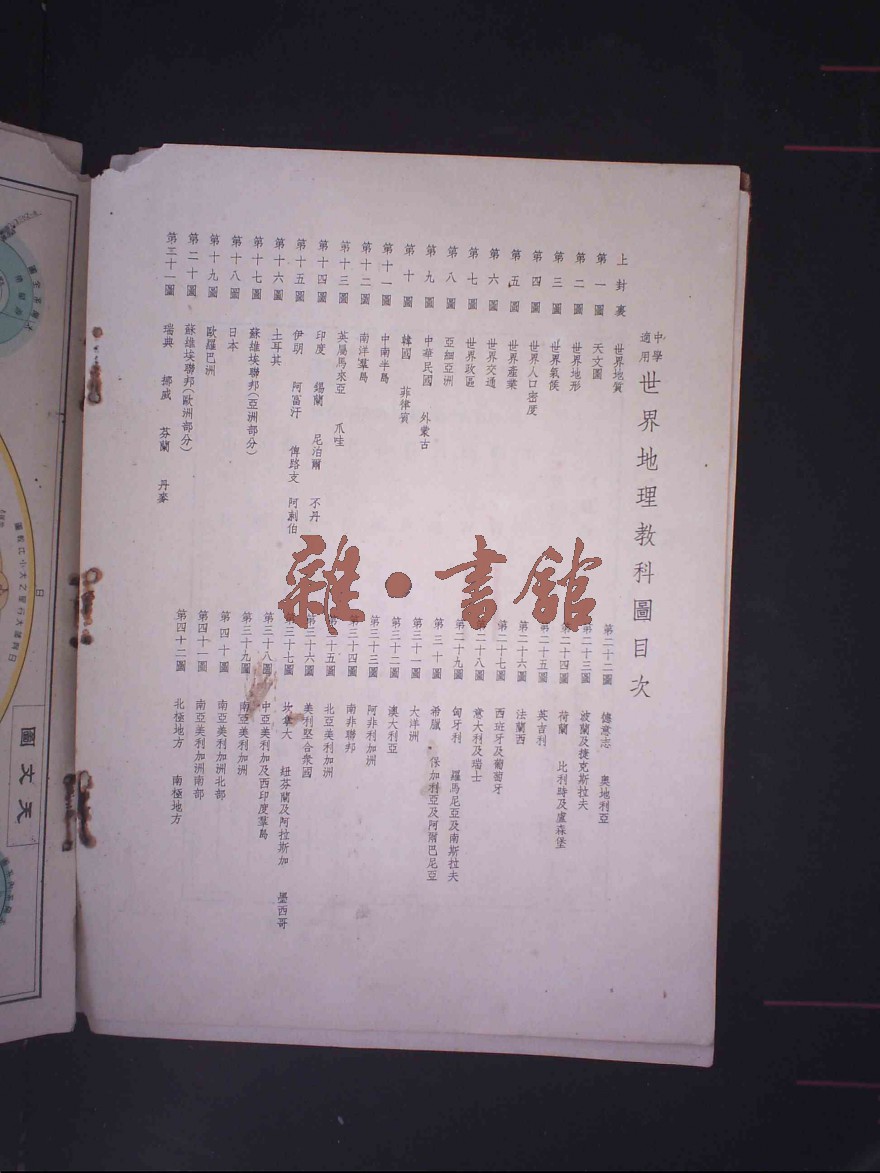 中學適用 世界地理教科圖目次
上封裏 世界地質
第一圖 天文圖
第二圖 世界地形
第三圖 世界氣候
第四圖 世界人口密度
第五圖 世界產業
第六圖 世界交通
第七圖 世界政區
第八圖 亞細亞洲
第九圖 中華民國 外蒙古
第十圖 韓國 菲律賓
第十一圖 中南半島
第十二圖 南洋羣島
第十三圖 英屬馬來亞 爪哇
第十四圖 印度 錫蘭 尼泊爾 不丹
第十五圖 伊朗 阿富汗 俾路支 阿剌伯
第十六圖 土耳其
第十七圖 蘇維埃聯邦(亞洲部分)
第十八圖 日本
第十九圖 歐羅巴洲
第二十圖 蘇維埃聯邦(歐洲部分)
第二十一圖 瑞典 挪威 芬蘭 丹麥
第二十二圖 德意志 奧地利亞
第二十三圖 波蘭及捷克斯拉夫
第二十四圖 荷蘭 比利時及盧森堡
第二十五圖 英吉利
第二十六圖 法蘭西
第二十七圖 西班牙及葡萄牙
第二十八圖 意大利及瑞士
第二十九圖 匈牙利 羅馬尼亞及南斯拉夫
第三十圖 希臘 保加利亞及阿爾巴尼亞
第三十一圖 大洋洲
第三十二圖 澳大利亞
第三十三圖 阿非利加洲
第三十四圖 南非聯邦
第三十五圖 北亞美利加洲
第三十六圖 美利堅合衆國
第三十七圖 坎拿大 紐芬蘭及阿拉斯加 墨西哥
第三十八圖 中亞美利加及西印度羣島
第三十九圖 南亞美利加洲
第四十圖 南亞美利加洲北部
第四十一圖 南亞美利加洲南部
第四十二圖 北極地方 南極地方
雜·書館
天文圖
日與諸大行星之大小比較圖
日